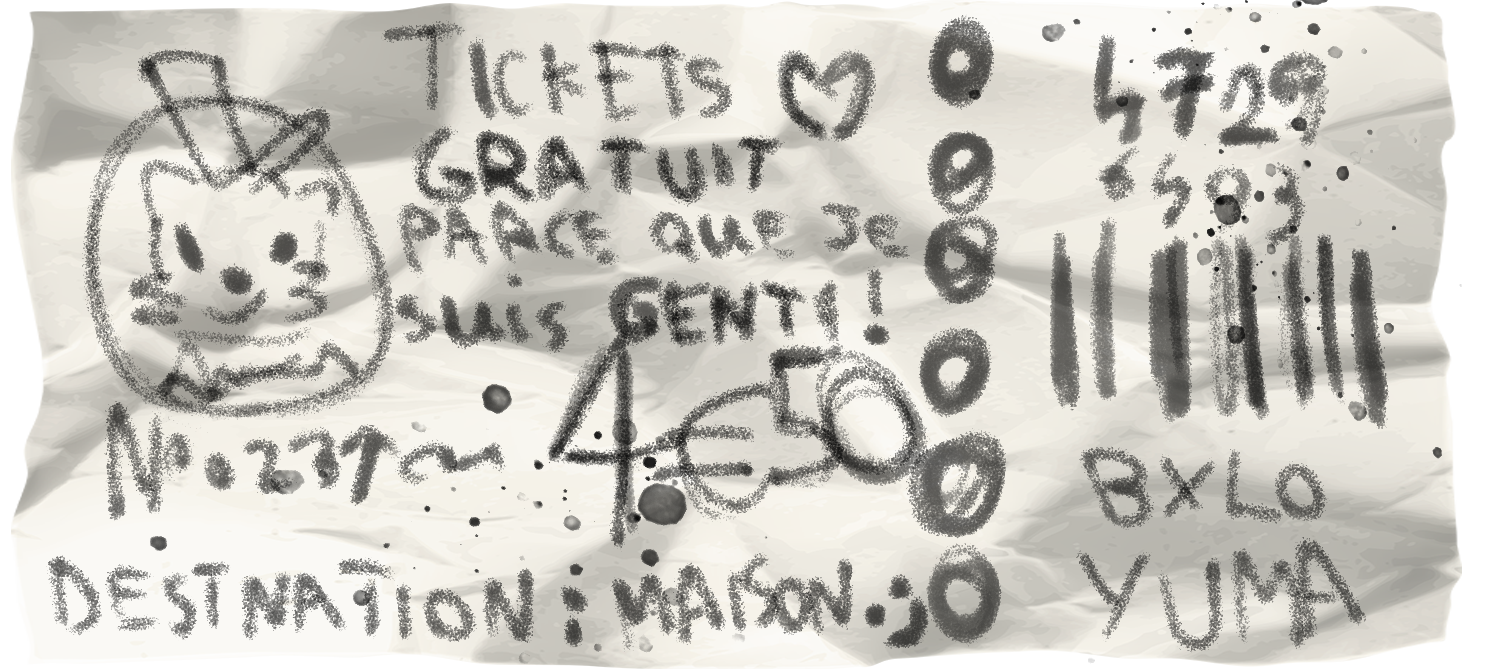 TICKETS ♡
GRATUIT
PARCE QUE JE
SUIS GENTI!
4€50
DESTNATION: MAISON.;)
4729
BXLO
YUMA